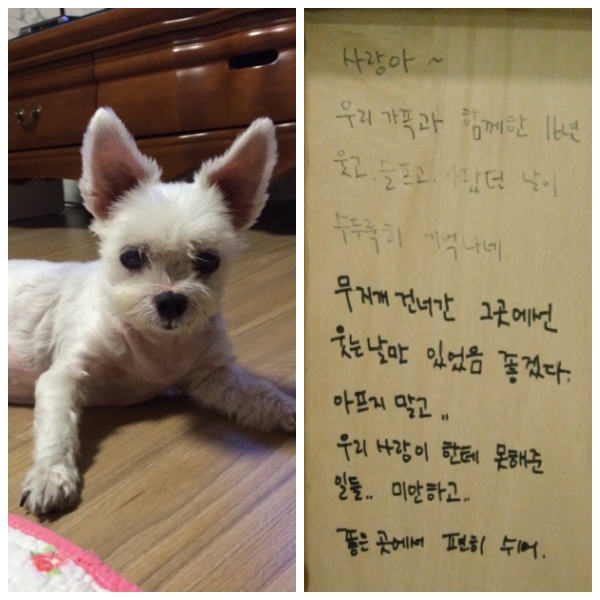 사랑아 ~
우리 가족과 함께한 16년
웃고. 슬프고. 아팠던 날이
수두룩히 기억나네.
무지개 건너간 그곳에선
웃는날만 있었음 좋겠다.
아프지 말고..
우리 사랑이 한테 못해준
일들.. 미안하고..
좋은 곳에서 편히 쉬어.